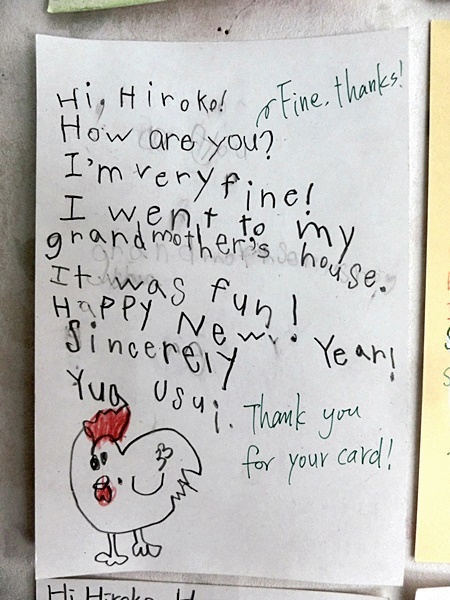 Hi, Hiroko!
Fine, thanks!
How are you?
I'm very fine!
I went to my
grandmother's house.
It was fun!
Happy New Year!
Sincerely
Yua Usui.
Thank you
for your card!
Hi Hiroko